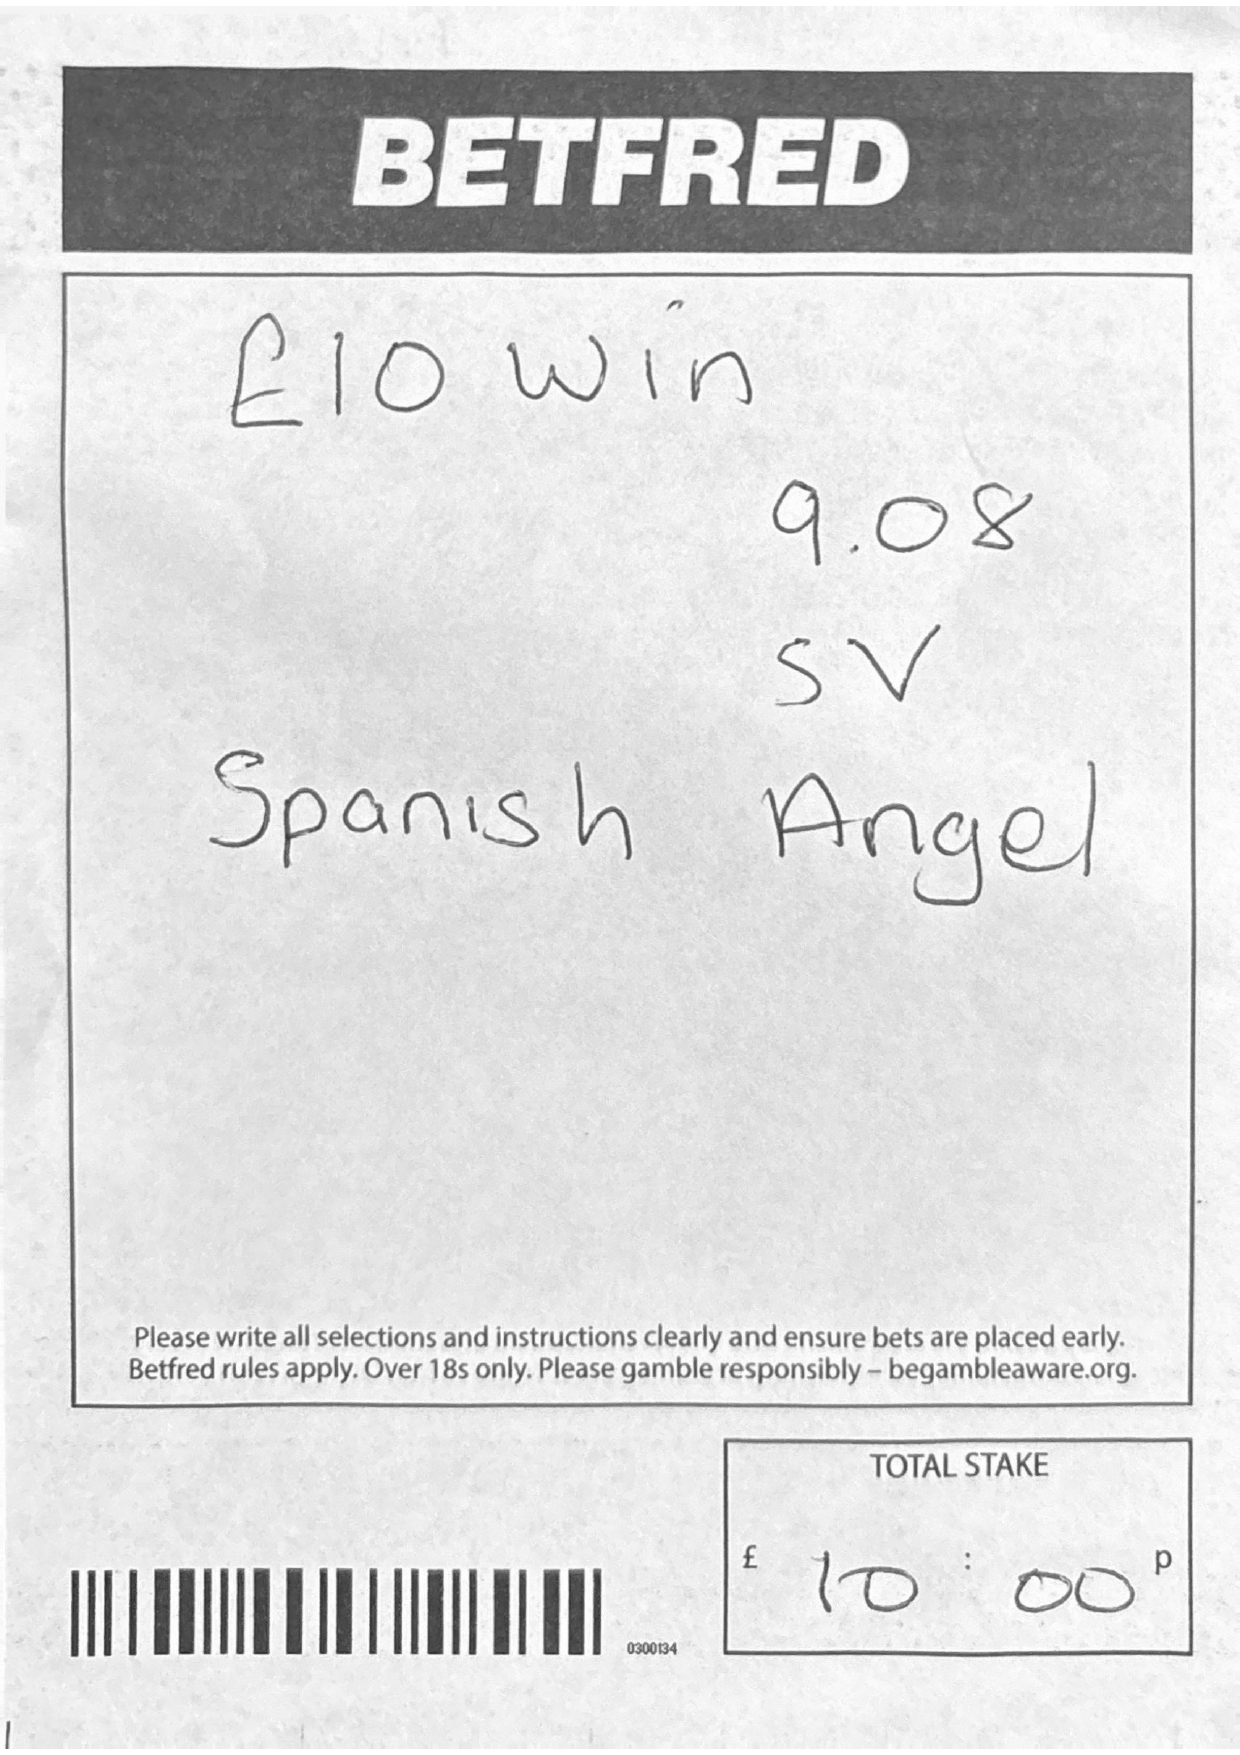 BETFRED
£10 Win
9.08
SV
Spanish Angel
Please write all selections and instructions clearly and ensure bets are placed early.
Betfred rules apply. Over 18s only. Please gamble responsibly – begambleaware.org.
TOTAL STAKE
£ 10 : 00 p
0300134